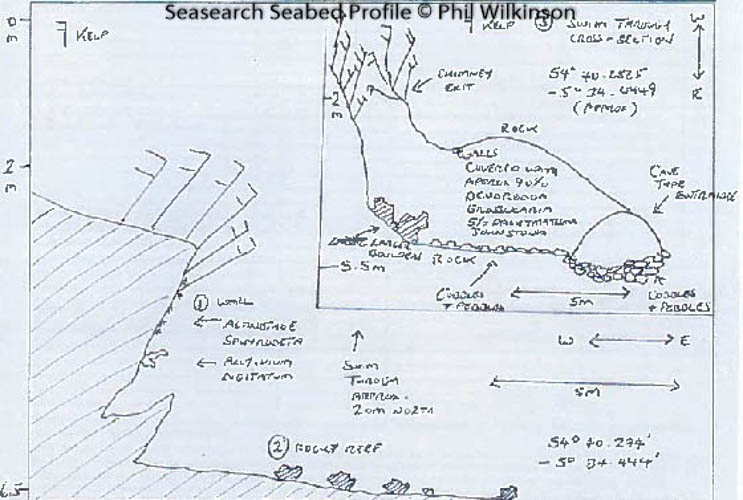 Seasearch Seabed Profile © Phil Wilkinson
0
m
KELP
KELP
③ SWIM THROUGH
CROSS-SECTION
W
E
54° 40.2825
-5° 34.4449
(APPROX)
CHIMNEY
EXIT
2
m
ROCK
WALLS
COVERED WITH
APPROX 90%
DENDRODOA
GROSSULARIA
JOHNSTONIA
CAVE
TYPE
ENTRANCE
2
m
LARGER
BOULDERS
ROCK
5.5m
COBBLES
+ PEBBLES
5m
COBBLES
+ PEBBLES
① WALL
ALCYONIUM
DIGITATUM
SWIM
THROUGH
APPROX.
20m NORTH
W
E
5m
② ROCKY REEF
54° 40.274'
-5° 34.444'
6.5